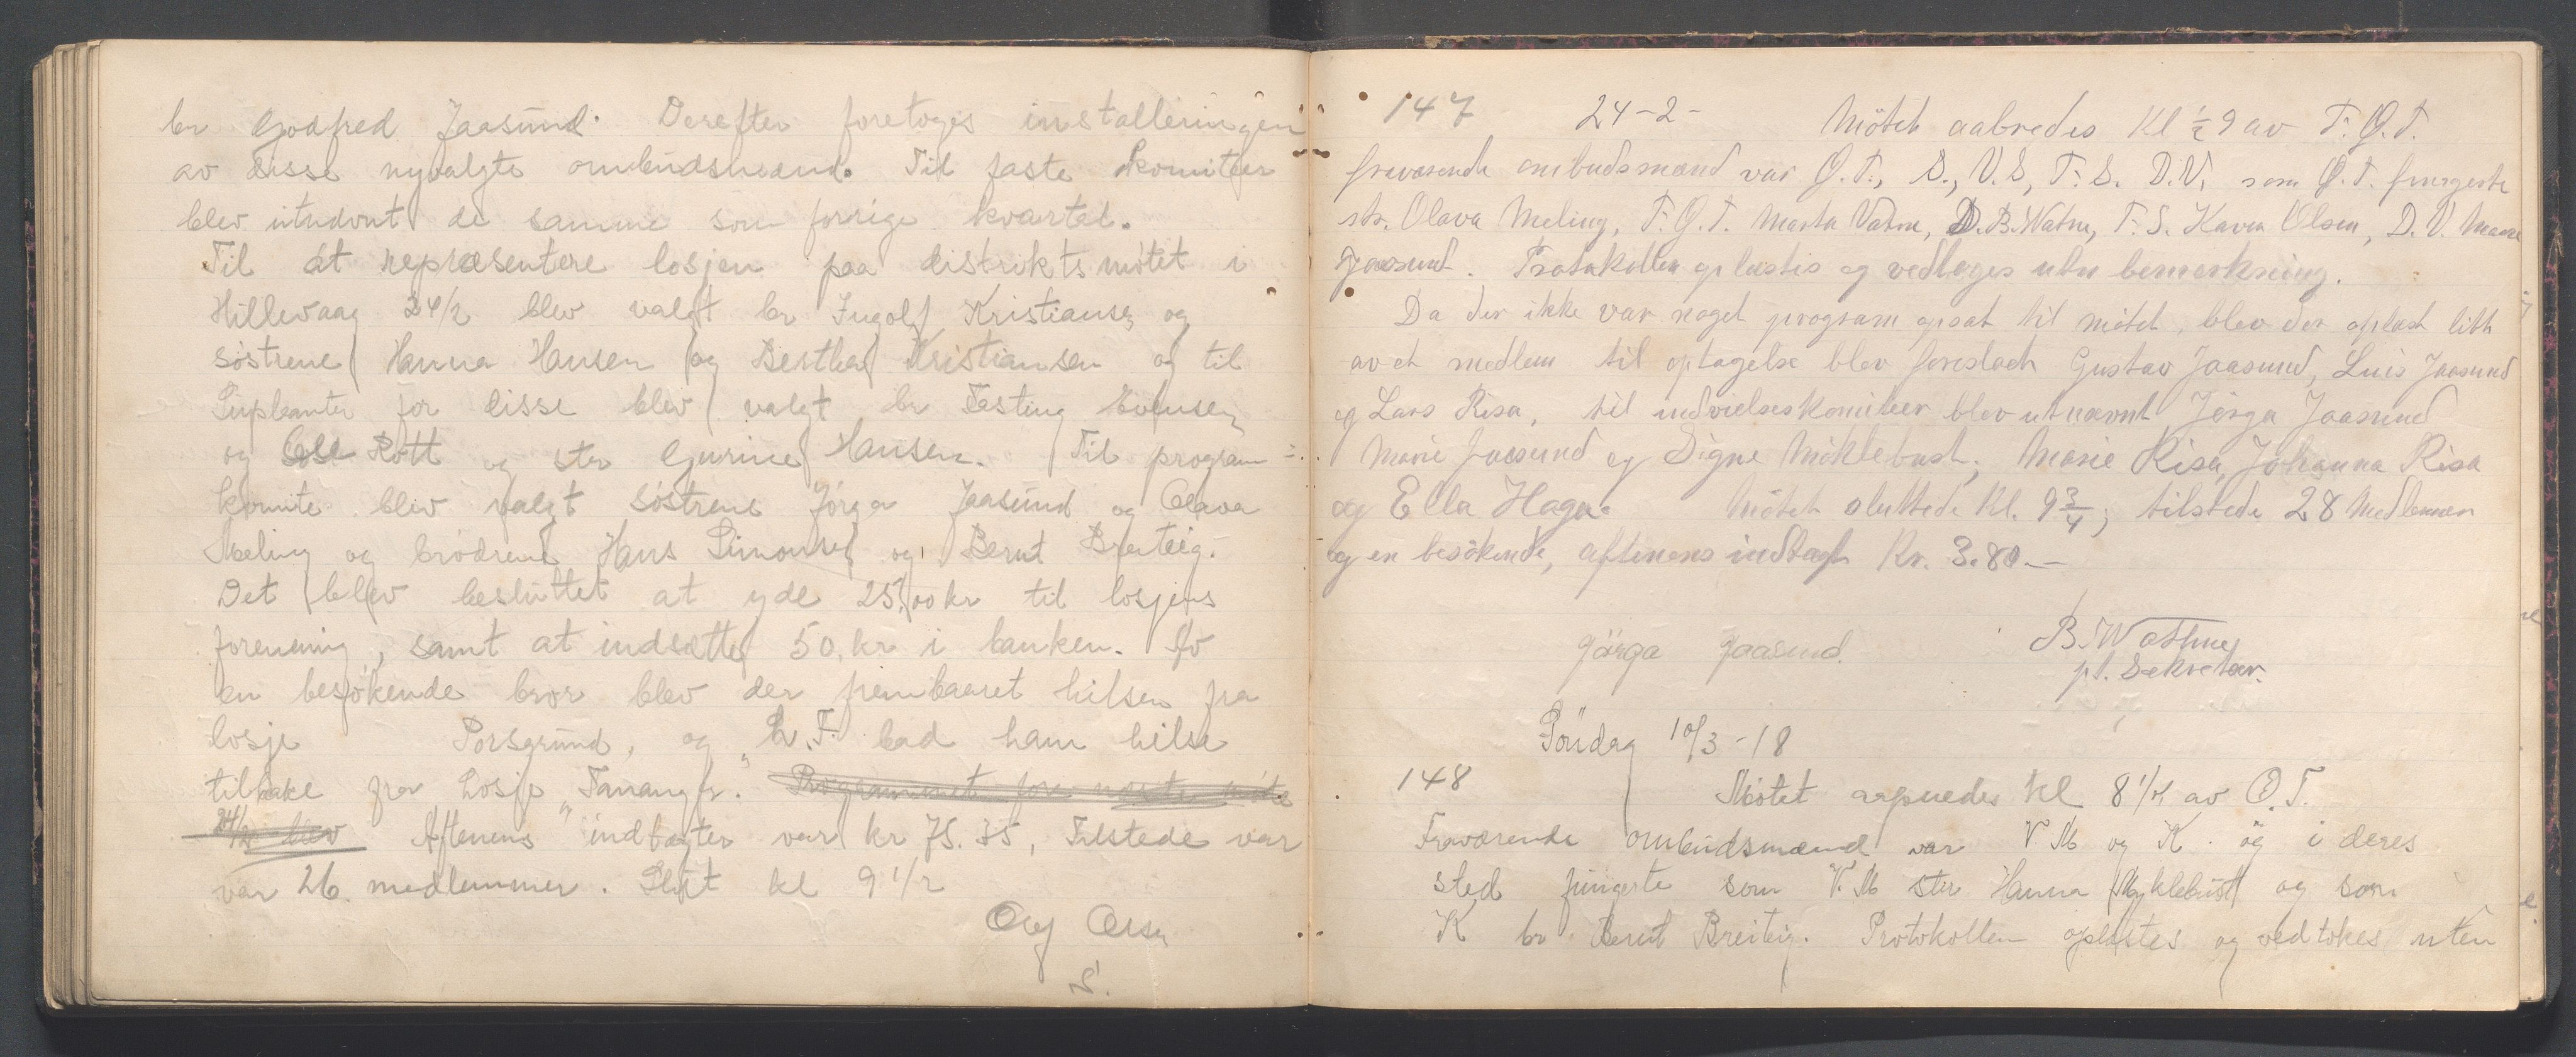 br Godfred Jaasund. Derefter foretoges installeringen
av disse nyvalgte ombudsmænd. Til faste komiteer
blev utnævnt de samme som forrige kvartal.
Til at repræsentere losjen paa distriktsmötet i
Hillevaag 24/2 blev valgt br Ingolf Kristiansen og
söstrene Hanna Hansen og Berthe Kristiansen og til
Supleanter for disse blev valgt br Tasting Evensen
og Rott og str Gurine Hansen. Til program-
komite blev valgt söstrene Jörga Jaasund og Olava
Meling og brödrene Hans Simonsen og Bernt Breiteig.
Det blev besluttet at yde 25,00 kr til losjens
forening, samt at indsætte 50 kr i banken. Av
en besökende bror blev der frembaaret hilsen fra
losje Porsgrund, og Ö.T. bad ham hilse
tilbake fra Losje "Tananger." Programmet for næste möte
24/2 blev Aftenens indtægter var kr 75.35, Tilstede var
var 26 medlemmer. Slut kl 9 1/2
Olaf Olsen
S.
147 24-2- Mötet aabnedes Kl ½ 9 av F.Ö.T.
fraværende ombudsmænd var Ö.T., S., V.S, F.S. D.V. som Ö.T. fungerte
str. Olava Meling, F.Ö.T. Marta Vatne, S. B. Watne, F.S. Karen Olsen, D.V. Marie
Jaasund. Protokollen oplæstes og vedtoges uten bemerkning.
Da der ikke var noget program opsat til mötet, blev der oplæst litt
av et medlem til optagelse blev foreslaat Gustav Jaasund, Luis Jaasund
og Lars Risa, til indvielseskomiteer blev utnævnt Jörga Jaasund
Marie Jaasund og Signe Möklebust, Marie Risa, Johanna Risa
og Ella Haga. Mötet sluttede Kl. 9¾; tilstede 28 Medlemmer
og en besökende, aftenens indtægt Kr. 3.80.—
Jörga Jaasund. B. Wathne
pt. Sekretær.
Söndag 10/3-18
148 Mötet aapnedes kl 8 1/2 av Ö.T.
Fraværende ombudsmænd var V.M og K. og i deres
sted fungerte som V.M str Hanna Myklebust og som
K br Bernt Breiteig. Protokollen oplæstes og vedtokes uten